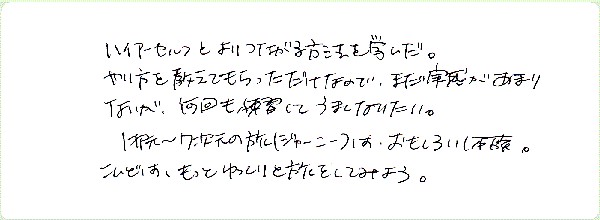 ハイアーセルフとよりつながる方法を学んだ。
やり方を教えてもらっただけなので、まだ実感があまり
ないが、何回も練習してうまくなりたい。
1次元〜7次元の旅(ジャーニー)は、おもしろい体験。
こんどは、もっとゆっくりと旅をしてみよう。